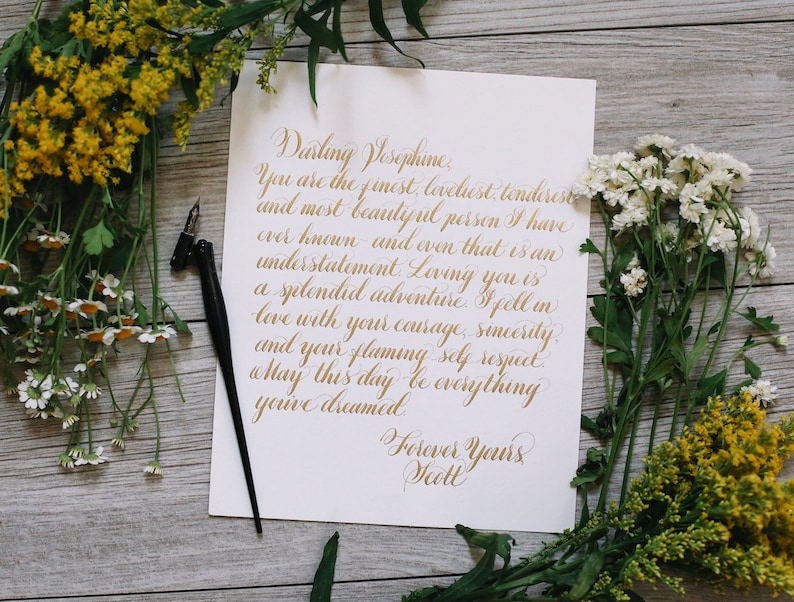 Darling Josephine,
You are the finest, loveliest, tenderest
and most beautiful person I have
ever known - and even that is an
understatement. Loving you is
a splendid adventure. I fell in
love with your courage, sincerity,
and your flaming self respect.
May this day be everything
you've dreamed.
Forever Yours,
Scott